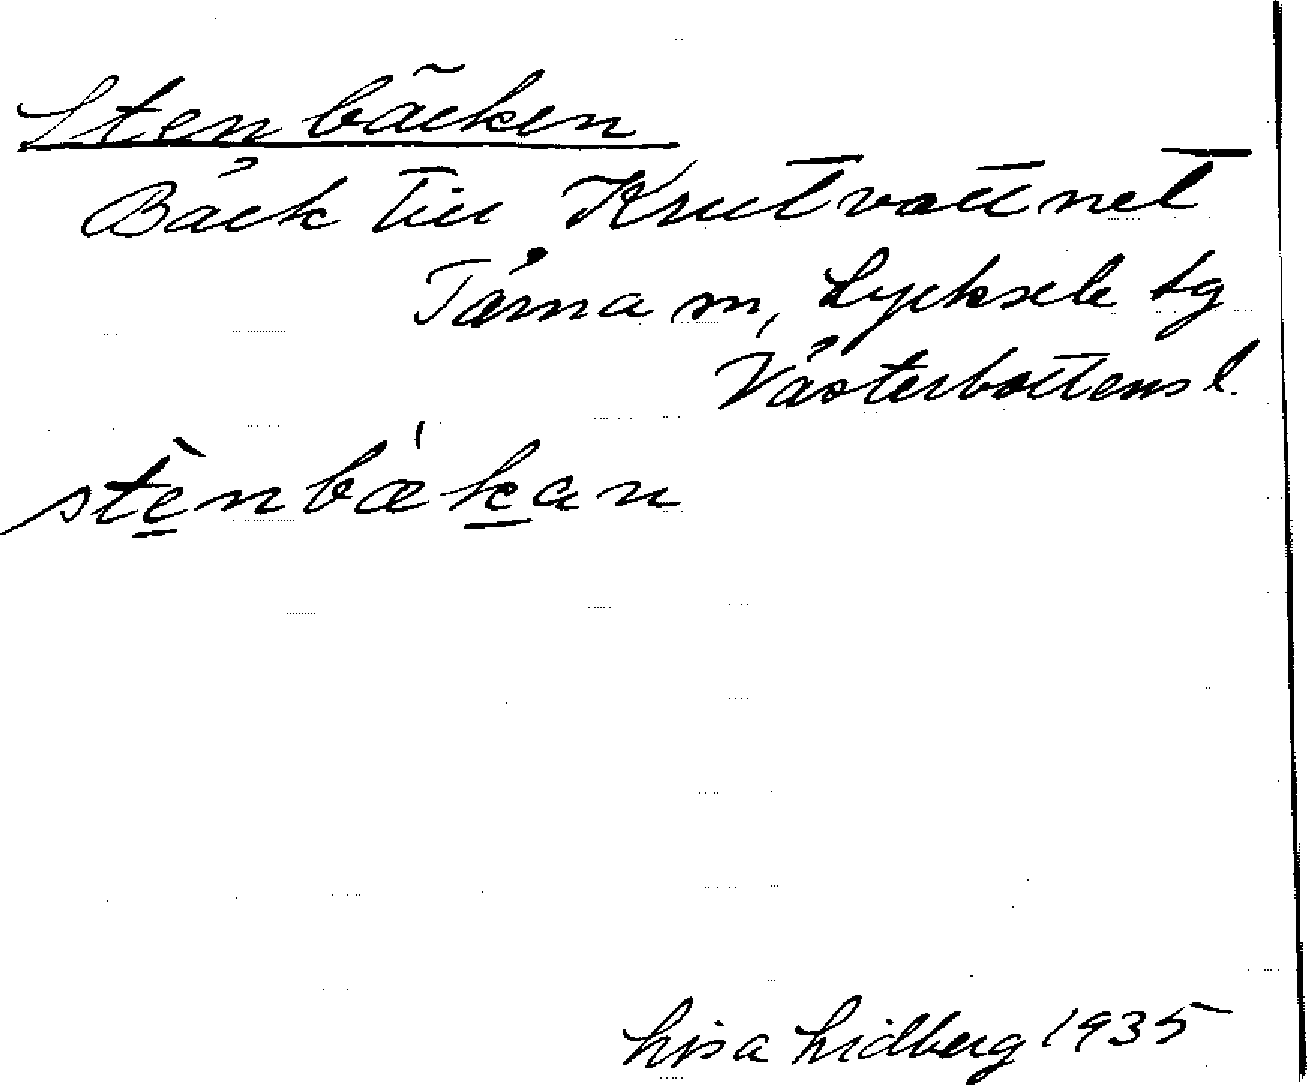 Stenbäcken
Bäck till Krutvattnet
Tärna sn, Lycksele tg
Västerbottens l.
stènbækan
Lisa Lidberg 1935